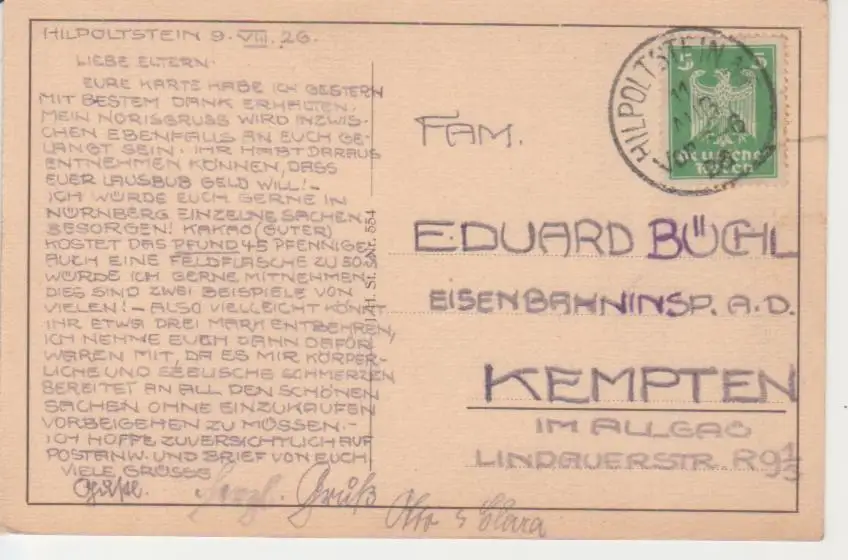 HILPOLTSTEIN 9. VIII. 26.
LIEBE ELTERN.
EURE KARTE HABE ICH GESTERN
MIT BESTEM DANK ERHALTEN.
MEIN NORISGRUSS WIRD INZWIS-
CHEN EBENFALLS AN EUCH GE-
LANGT SEIN. IHR HABT DARAUS
ENTNEHMEN KÖNNEN, DASS
EUER LAUSBUB GELD WILL! -
ICH WÜRDE EUCH GERNE IN
NÜRNBERG EINZELNE SACHEN
BESORGEN! KAKAO (GUTER)
KOSTET DAS PFUND 45 PFENNIGE
AUCH EINE FELDFLASCHE ZU 50
WÜRDE ICH GERNE MITNEHMEN.
DIES SIND ZWEI BEISPIELE VON
VIELEN! - ALSO VIELLEICHT KÖNNT
IHR ETWA DREI MARK ENTBEHREN,
ICH NEHME EUCH DANN DAFÜR
WAREN MIT, DA ES MIR KÖRPER-
LICHE UND SEELISCHE SCHMERZEN
BEREITET AN ALL DEN SCHÖNEN
SACHEN OHNE EINZUKAUFEN
VORBEIGEHEN ZU MÜSSEN. -
ICH HOFFE ZUVERSICHTLICH AUF
POSTANW. UND BRIEF VON EUCH.
VIELE GRÜSSE
Herzl. Gruß
Otto & Clara
Nr. 554
FAM.
EDUARD BÜCHL
EISENBAHNINSP. A.D.
KEMPTEN
IM ALLGÄU
LINDAUERSTR. R 9 1/3
HILPOLTSTEIN
5 5
Deutsches
Reich